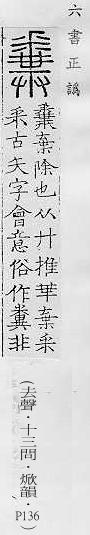 六書正譌
棄除也从廾推華棄釆
釆古矢字會意俗作糞非
(去聲．十三問．焮韻．
P136)